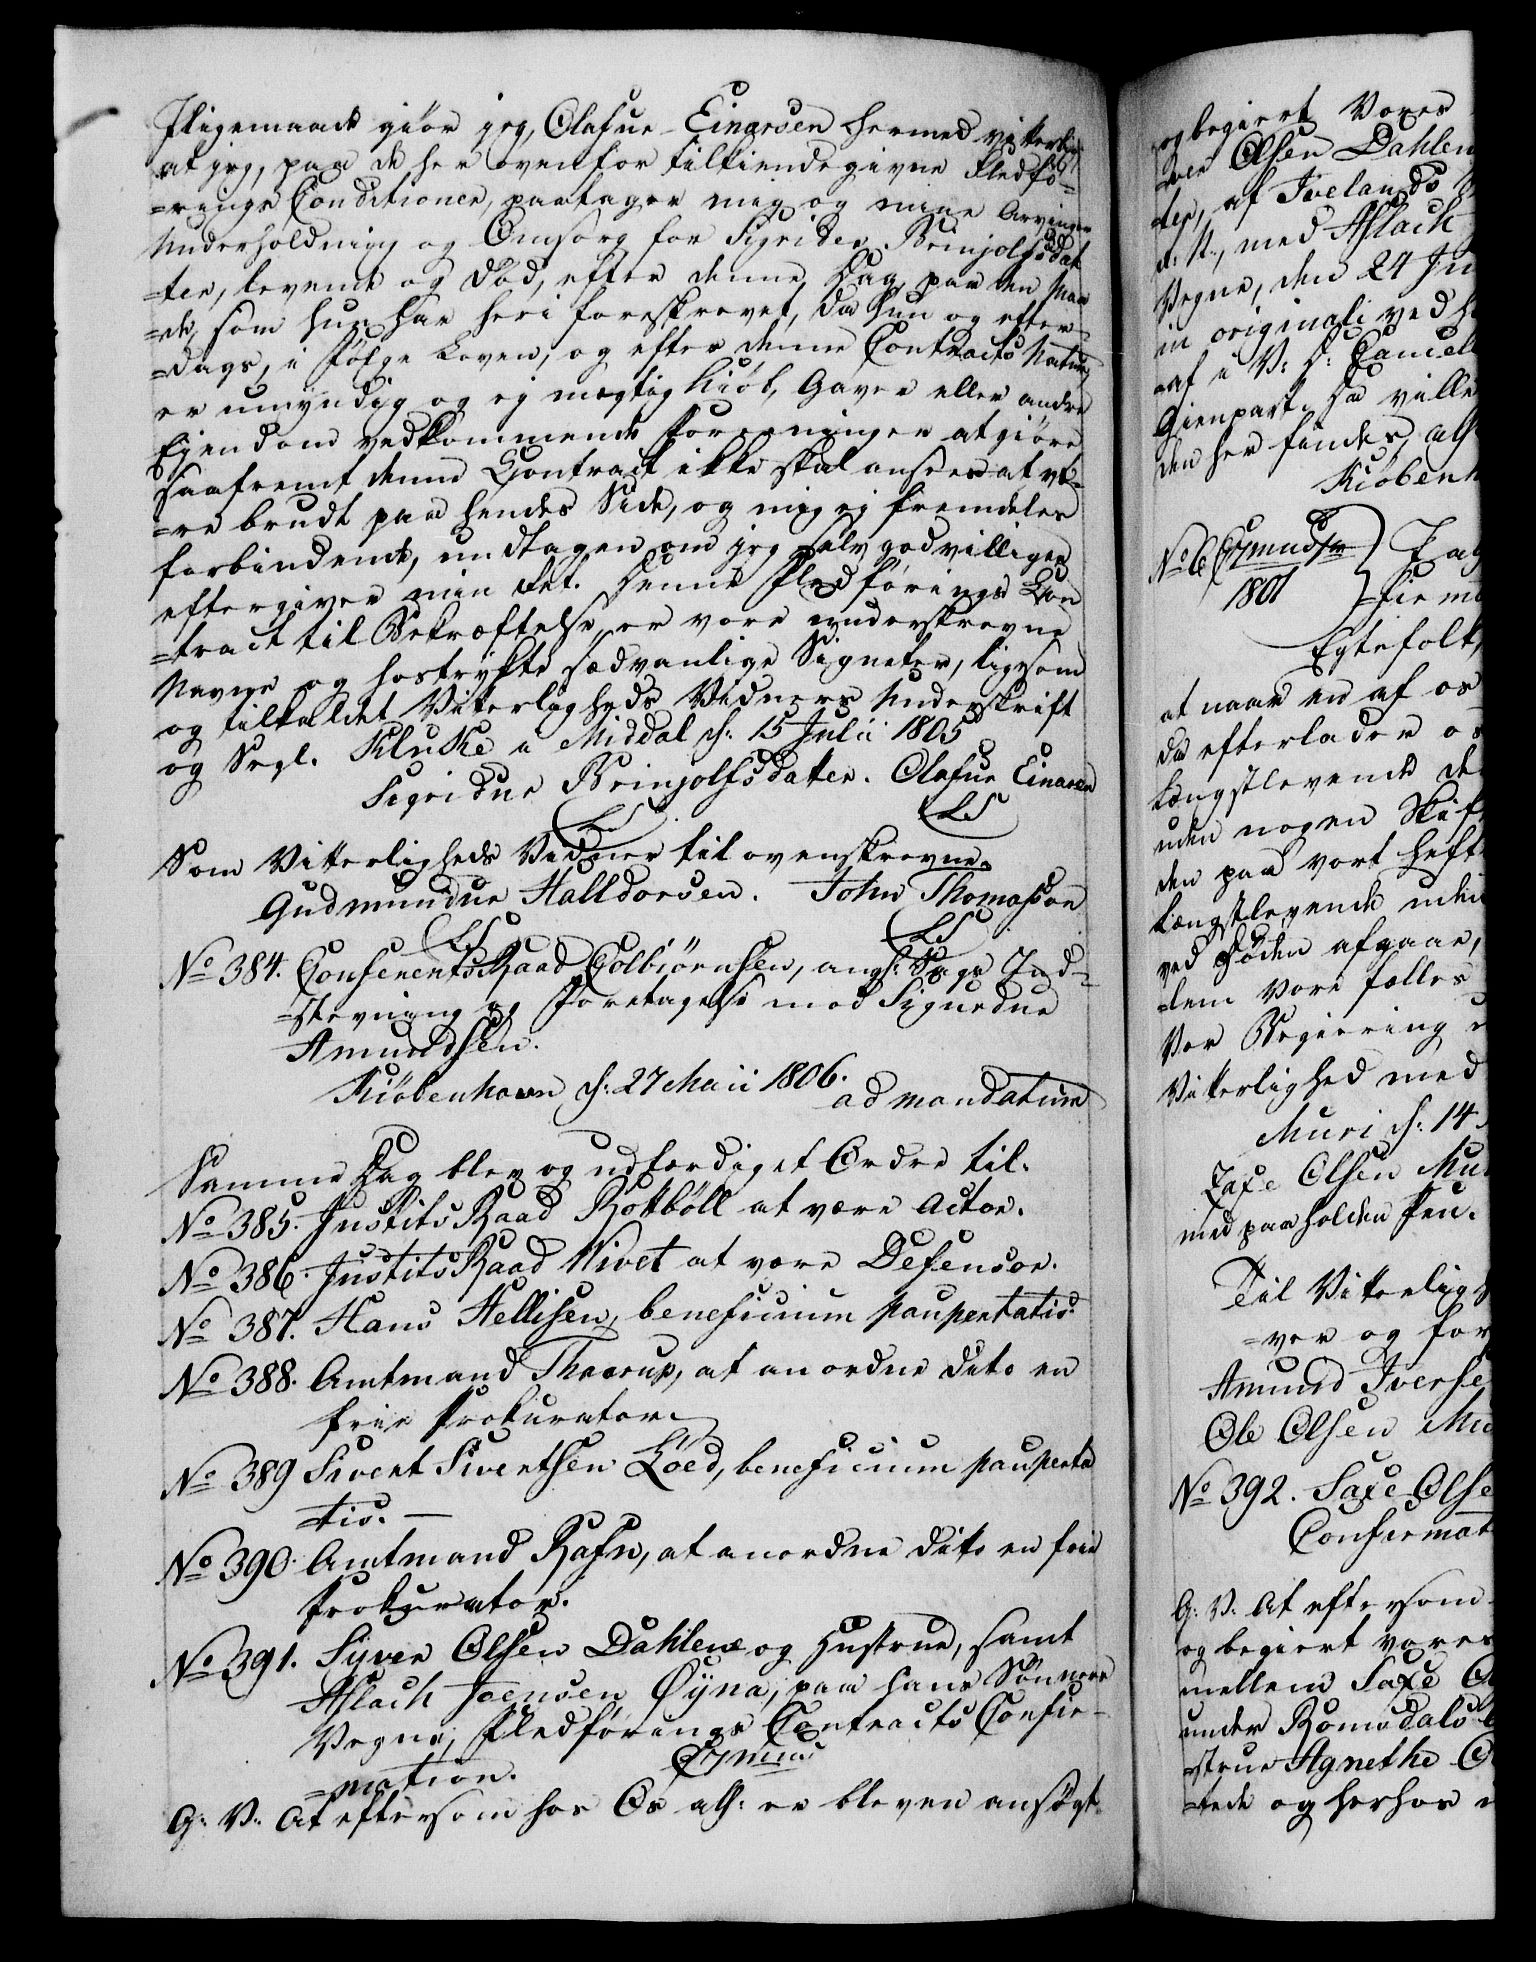 Iligemaade giör jeg, Olafur Einarsen hermed vitterligt
at jeg, paa de her ovenfor tilkiendegivne Fledfö-
=rings Conditioner, paatager mig og mine Arvinger
Underholdning og Omsorg for Sigrider Brinjolfsdat
=ter, levende og död, efter denne Dag, paa den Maa
=de, som hun har heri foreskrevet, da hun og efter-
=dags, i Fölge Loven, og efter denne Contracts Natur,
er umyndig og ej mægtig Kiöb, Gaver eller andre
Ejendom vedkommende Foreeninger at giöre
saafremt denne Contract ikke skal ansees at væ-
=re brudt paa hendes Side, og mig ej fremdeles
forbindende, undtagen om jeg selv godvilligen
eftergiver min Ret. Denne Fledförings Con
=tract til Bekræftelse er vore underskrevne
Navne og hostrykte sædvanlige Signeter, ligesom
og tilkaldet Vitterligheds Vidners Underskrift
og Segl. Kluke a Middal d: 15 Julii 1805
Sigridur Brinjolfsdatter. Olafur Einarsen
LS LS
Som Vitterligheds Vidner til ovenskrevne.
Gudmundur Halldorsen. John Thomasson
LS LS
No 384. Conferents Raad Colbiørnsen, angl: Sags Ind-
=stevning og Foretagelse mod Sigurdur
Amundsen.
Kiöbenhavn d: 27 Maii 1806.
ad mandatum
Samme Dag blev og udfærdiget Ordre til.
No 385. Justits Raad Rottböll at være Actor.
No 386. Justits Raad Wivet at være Defensor.
No 387. Hans Hellisen, beneficium paupertatis.
No 388. Amtmand Thaarup, at anordne dito en
frie Prokurator.
No 389 Sivert Sivertsen Löed, beneficium pauperta
=tis. —
No 390. Amtmand Rafn, at anordne dito en frie
Prokurator.
No 391. Syver Olsen Dahlene og Hustrue, samt
Aslach Joensen Öyna, paa hans Sönners
Vegne, Fledförings Contracts Confir-
=mation.
G: V: At eftersom hos Os all: er bleven ansögt
og begiert Vores
=ver Olsen Dahlen
=ter, af Ivelands
d. St., med Aslach
Vegne, den 24 Ju
in originali ved h
=af i V: D: Cancel
Gienpart. Da ville
den her findes, all
Kiöbenh
No 6
1801
Egtefolk,
at naar en af os
da efterlader o
længstlevende de
uden nogen Skift
den paa vort Heft
længstlevende uden
ved Döden afgaar,
=lem vore fælles
Vor Begiering
Vitterlighed med
Muri d: 14
Saxe Olsen Mu
med paaholden Pen.
Til Vitterlig
=ver og for
Amund Iverse
Ole Olsen Mu
No 392. Saxe Olse
Confirmat
G: V: At eftersom
og begiert vores
mellem Saxe O
under Romsdals
=strue Agnethe O
=tede og herhos